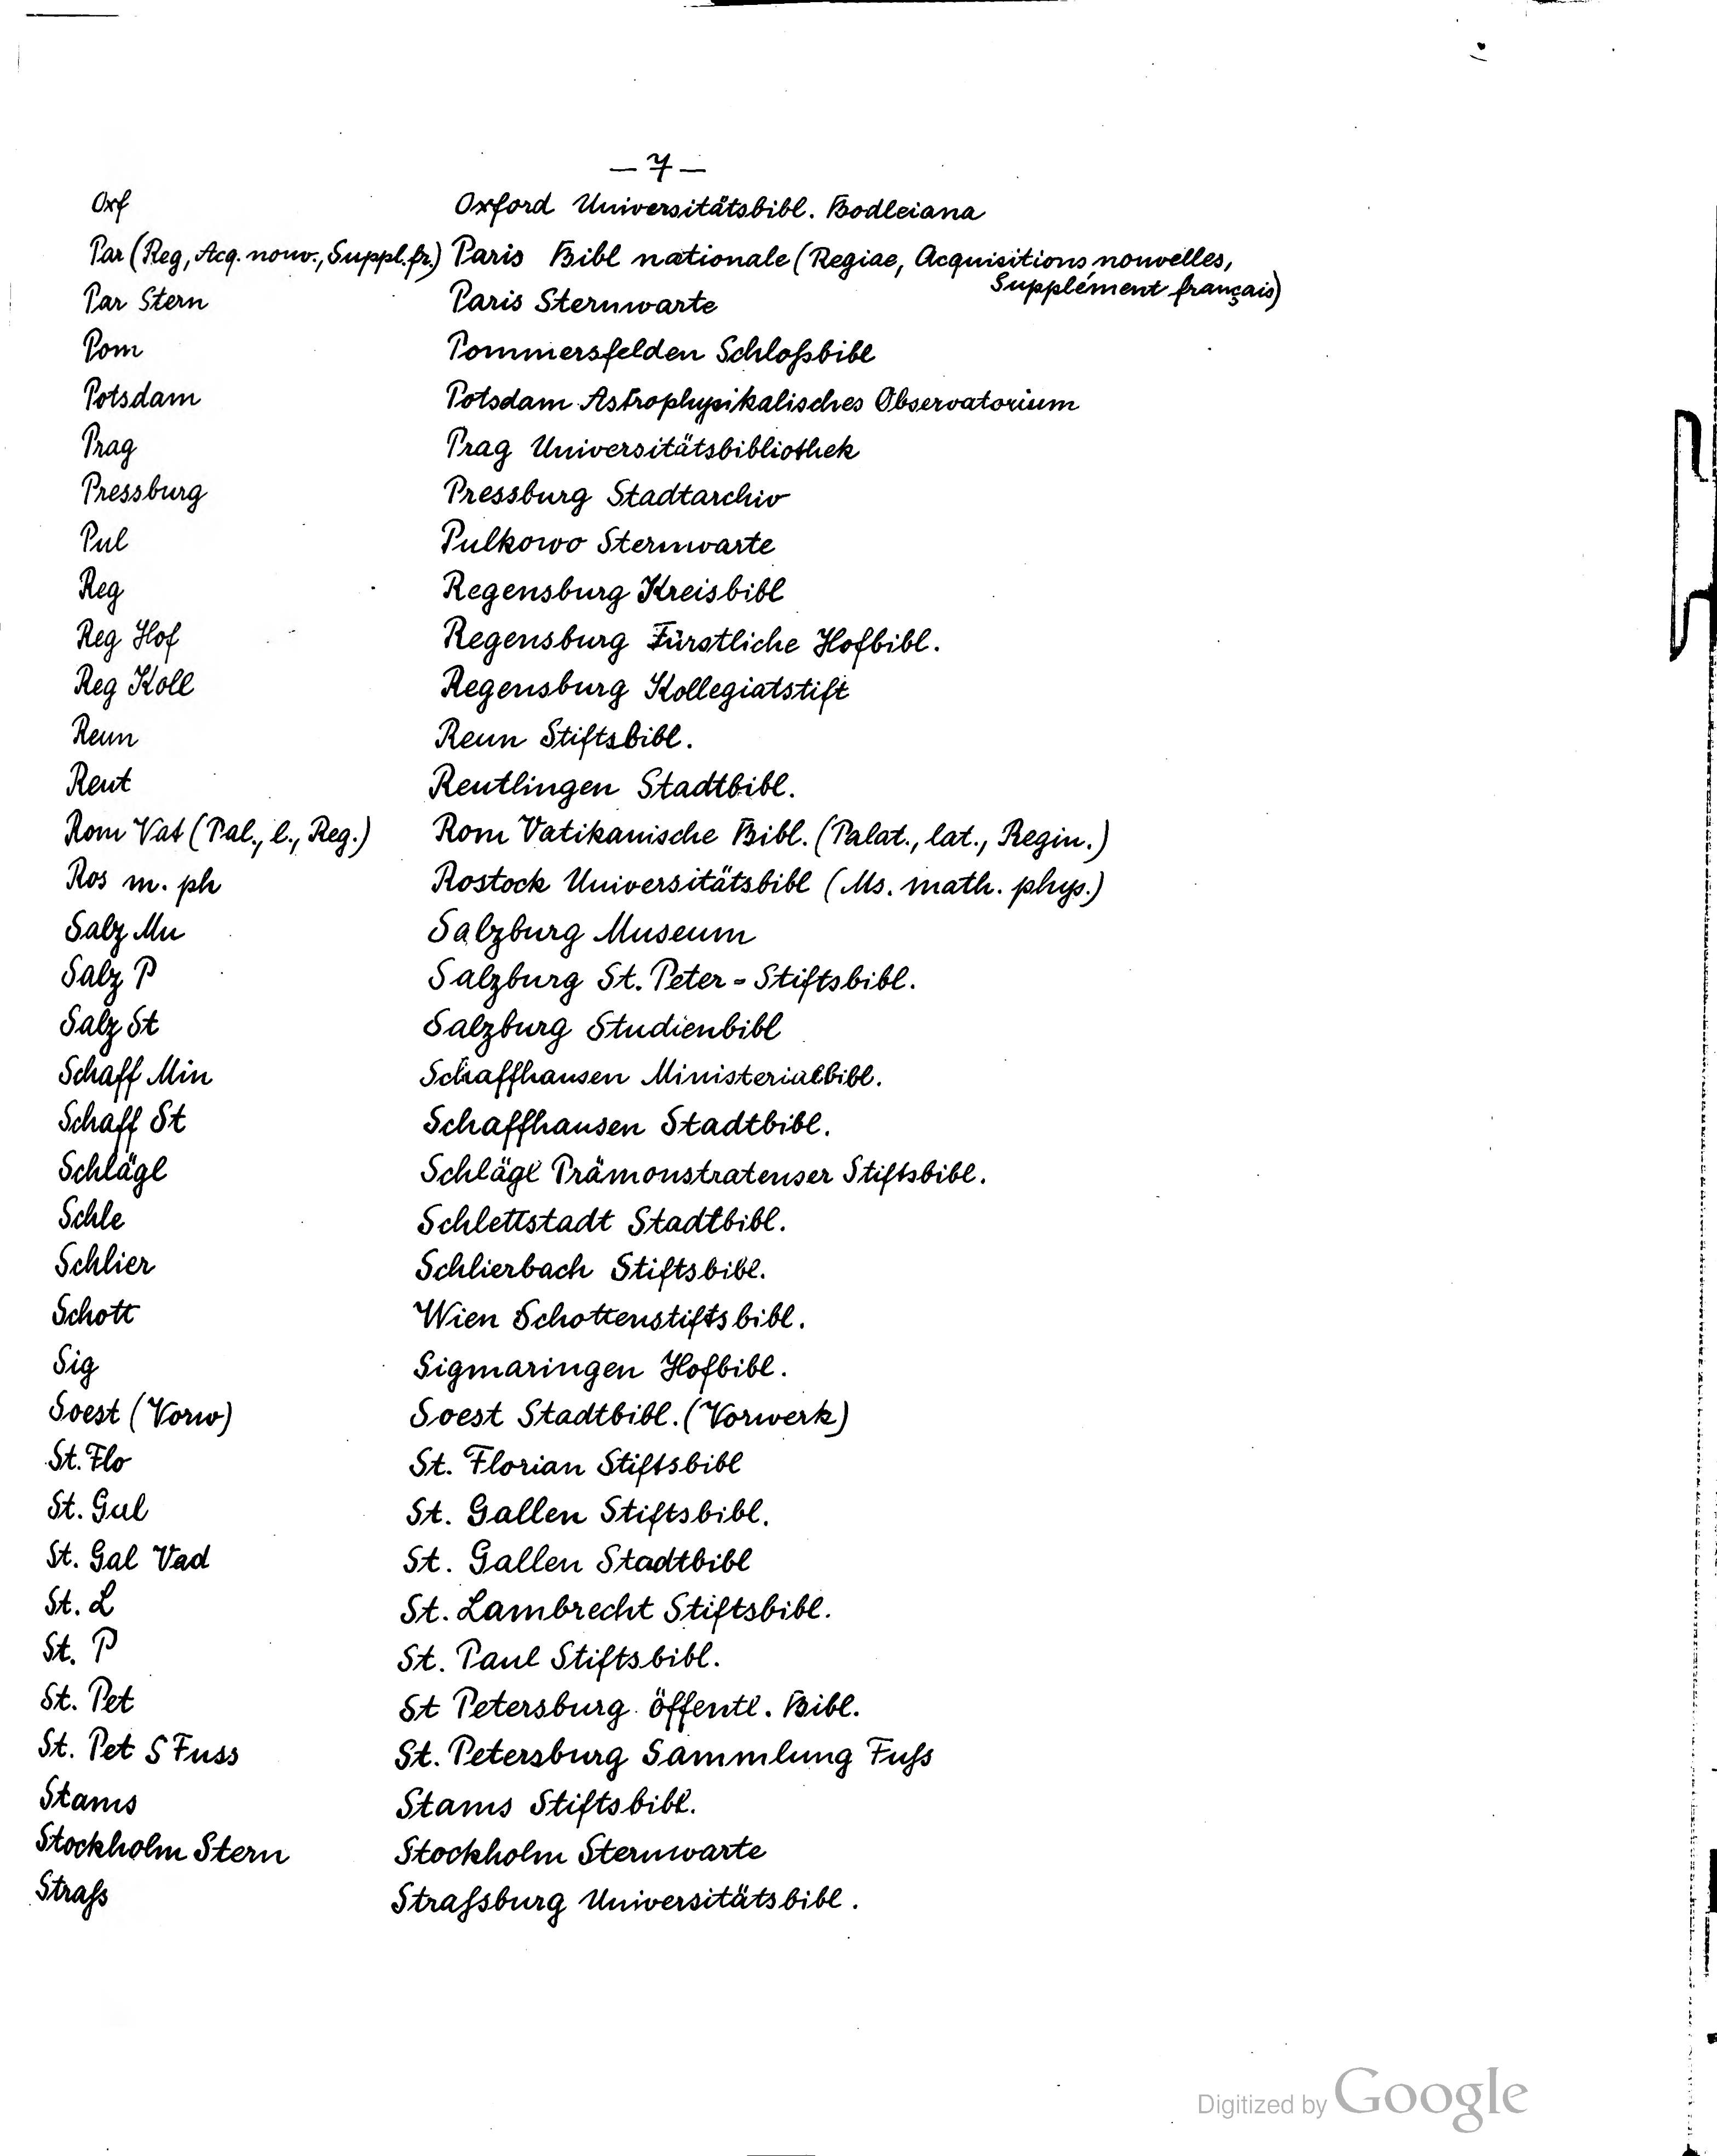 — 7 —
Oxf Oxford Universitätsbibl. Bodleiana
Par (Reg, Acq. nouv., Suppl. fr.) Paris Bibl nationale (Regiae, Acquisitions nouvelles,
Supplément français)
Par Stern Paris Sternwarte
Pom Pommersfelden Schloßbibl
Potsdam Potsdam Astrophysikalisches Observatorium
Prag Prag Universitätsbibliothek
Pressburg Pressburg Stadtarchiv
Pul Pulkowo Sternwarte
Reg Regensburg Kreisbibl
Reg Hof Regensburg Fürstliche Hofbibl.
Reg Koll Regensburg Kollegiatstift
Reun Reun Stiftsbibl.
Reut Reutlingen Stadtbibl.
Rom Vat (Pal., l., Reg.) Rom Vatikanische Bibl. (Palat., lat., Regin.)
Ros m. ph Rostock Universitätsbibl (Ms. math. phys.)
Salz Mu Salzburg Museum
Salz P Salzburg St. Peter-Stiftsbibl.
Salz St Salzburg Studienbibl
Schaff Min Schaffhausen Ministerialbibl.
Schaff St Schaffhausen Stadtbibl.
Schlägl Schlägl Prämonstratenser Stiftsbibl.
Schle Schlettstadt Stadtbibl.
Schlier Schlierbach Stiftsbibl.
Schott Wien Schottenstiftsbibl.
Sig Sigmaringen Hofbibl.
Soest (Vorw) Soest Stadtbibl. (Vorwerk)
St. Flo St. Florian Stiftsbibl
St. Gal St. Gallen Stiftsbibl.
St. Gal Vad St. Gallen Stadtbibl
St. L St. Lambrecht Stiftsbibl.
St. P St. Paul Stiftsbibl.
St. Pet St Petersburg öffentl. Bibl.
St. Pet S Fuss St. Petersburg Sammlung Fuß
Stams Stams Stiftsbibl.
Stockholm Stern Stockholm Sternwarte
Straß Straßburg Universitätsbibl.
Digitized by Google